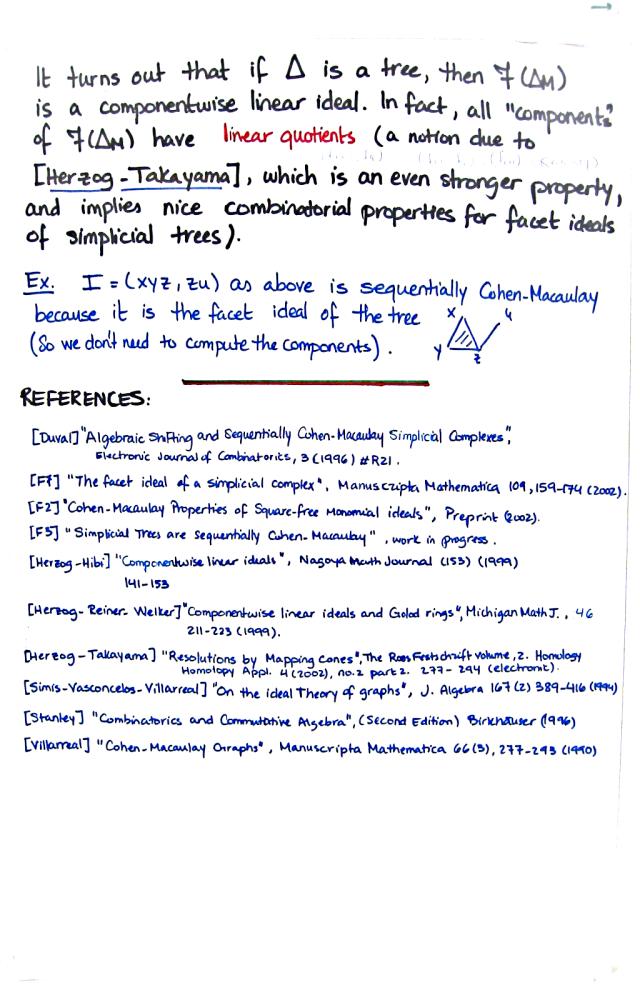 It turns out that if Δ is a tree, then F(Δ_M)
is a componentwise linear ideal. In fact, all "components"
of F(Δ_M) have linear quotients (a notion due to
[Herzog-Takayama], which is an even stronger property,
and implies nice combinatorial properties for facet ideals
of simplicial trees).
Ex. I = (xyz, zu) as above is sequentially Cohen-Macaulay
because it is the facet ideal of the tree
(So we don't need to compute the components).
x u
y z
REFERENCES:
[Duval] "Algebraic Shifting and Sequentially Cohen-Macaulay Simplicial Complexes",
Electronic Journal of Combinatorics, 3 (1996) #R21.
[F1] "The facet ideal of a simplicial complex", Manuscripta Mathematica 109, 159-174 (2002).
[F2] "Cohen-Macaulay Properties of Square-free Monomial ideals", Preprint (2002).
[F3] "Simplicial Trees are sequentially Cohen-Macaulay", work in progress.
[Herzog-Hibi] "Componentwise linear ideals", Nagoya Math Journal (153) (1999)
141-153
[Herzog-Reiner-Welker] "Componentwise linear ideals and Golod rings", Michigan Math J., 46
211-223 (1999).
[Herzog-Takayama] "Resolutions by Mapping Cones", The Roos Festschrift volume, 2. Homology
Homolopy Appl. 4 (2002), no.2 part 2. 277-294 (electronic).
[Simis-Vasconcelos-Villarreal] "On the ideal Theory of graphs", J. Algebra 167 (2) 389-416 (1994)
[Stanley] "Combinatorics and Commutative Algebra", (Second Edition) Birkhäuser (1996)
[Villarreal] "Cohen-Macaulay Graphs", Manuscripta Mathematica 66 (3), 277-293 (1990)